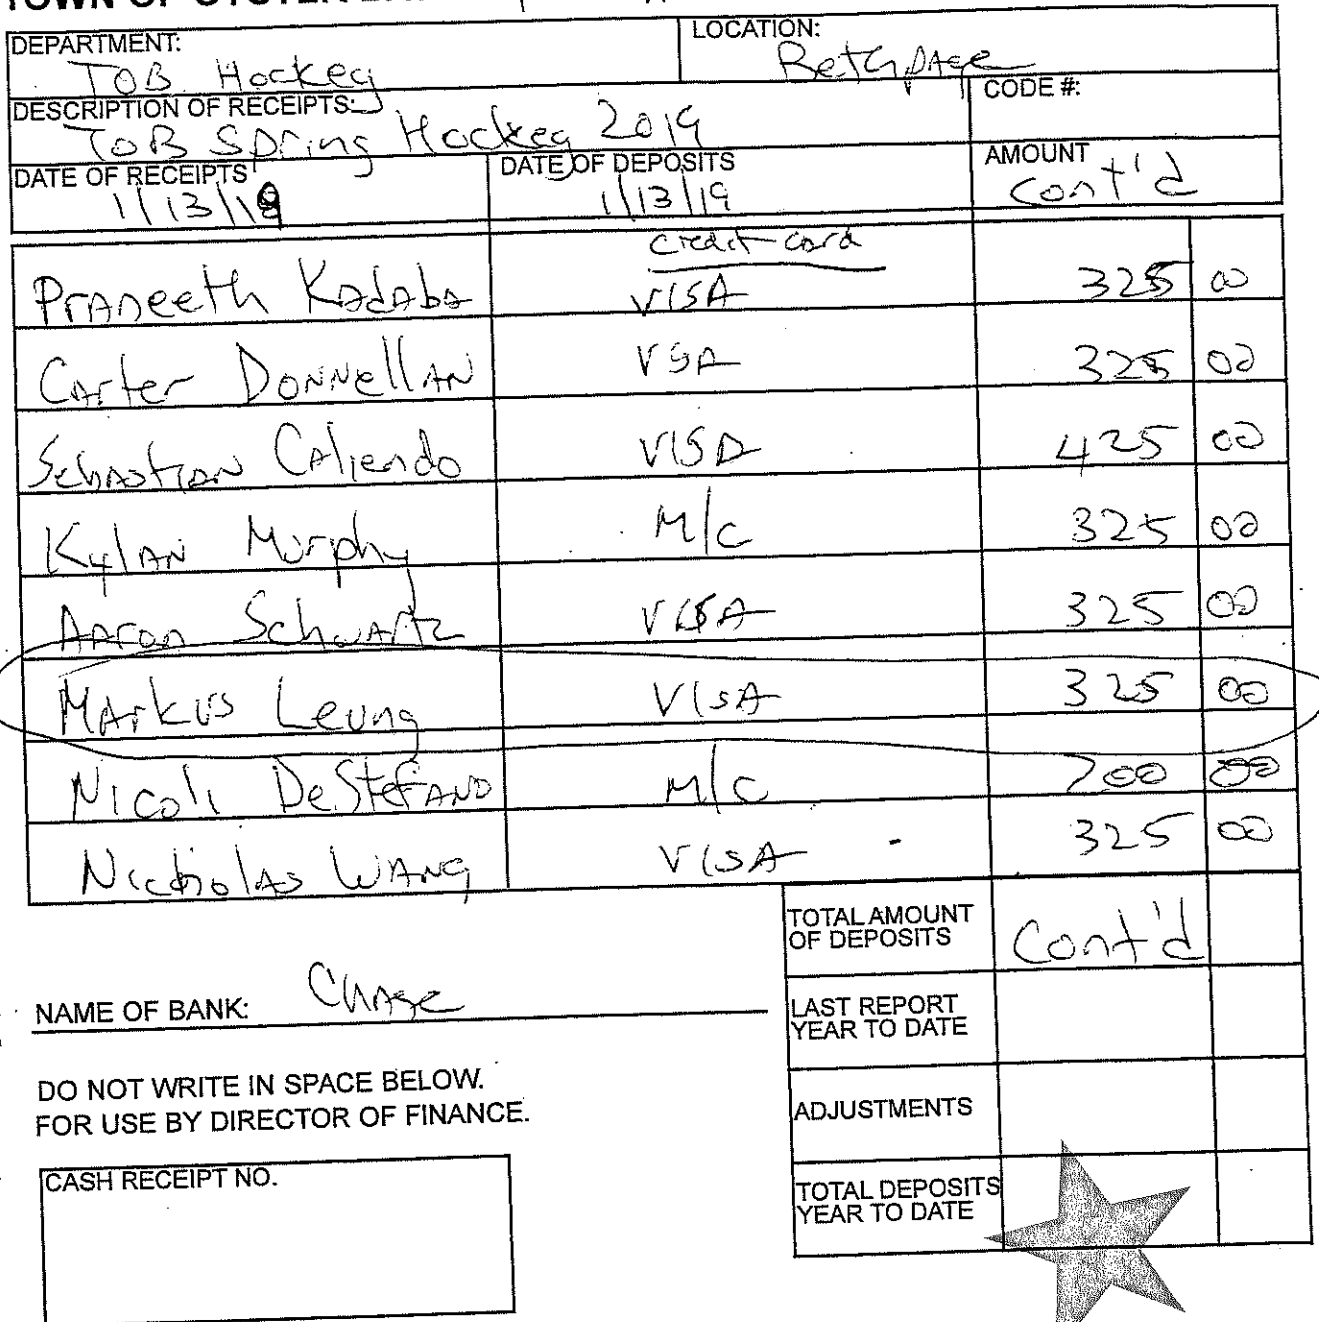 TOWN OF OYSTER
DEPARTMENT: LOCATION:
TOB Hockey Bethpage
DESCRIPTION OF RECEIPTS: CODE #:
TOB Spring Hockey 2019
DATE OF RECEIPTS DATE OF DEPOSITS AMOUNT
1/13/19 1/13/19 Cont'd
Credit card
Praneeth Kadaba VISA 325 00
Carter Donnellan VISA 325 00
Sebastian Caliendo VISA 425 00
Kylan Murphy M/C 325 00
Aaron Schwartz VISA 325 00
Markus Leung VISA 325 00
Nicoli DeStefano M/C 200 00
Nicholas Wang VISA 325 00
TOTAL AMOUNT
OF DEPOSITS Cont'd
NAME OF BANK: Chase
LAST REPORT
YEAR TO DATE
DO NOT WRITE IN SPACE BELOW.
FOR USE BY DIRECTOR OF FINANCE.
ADJUSTMENTS
CASH RECEIPT NO.
TOTAL DEPOSITS
YEAR TO DATE